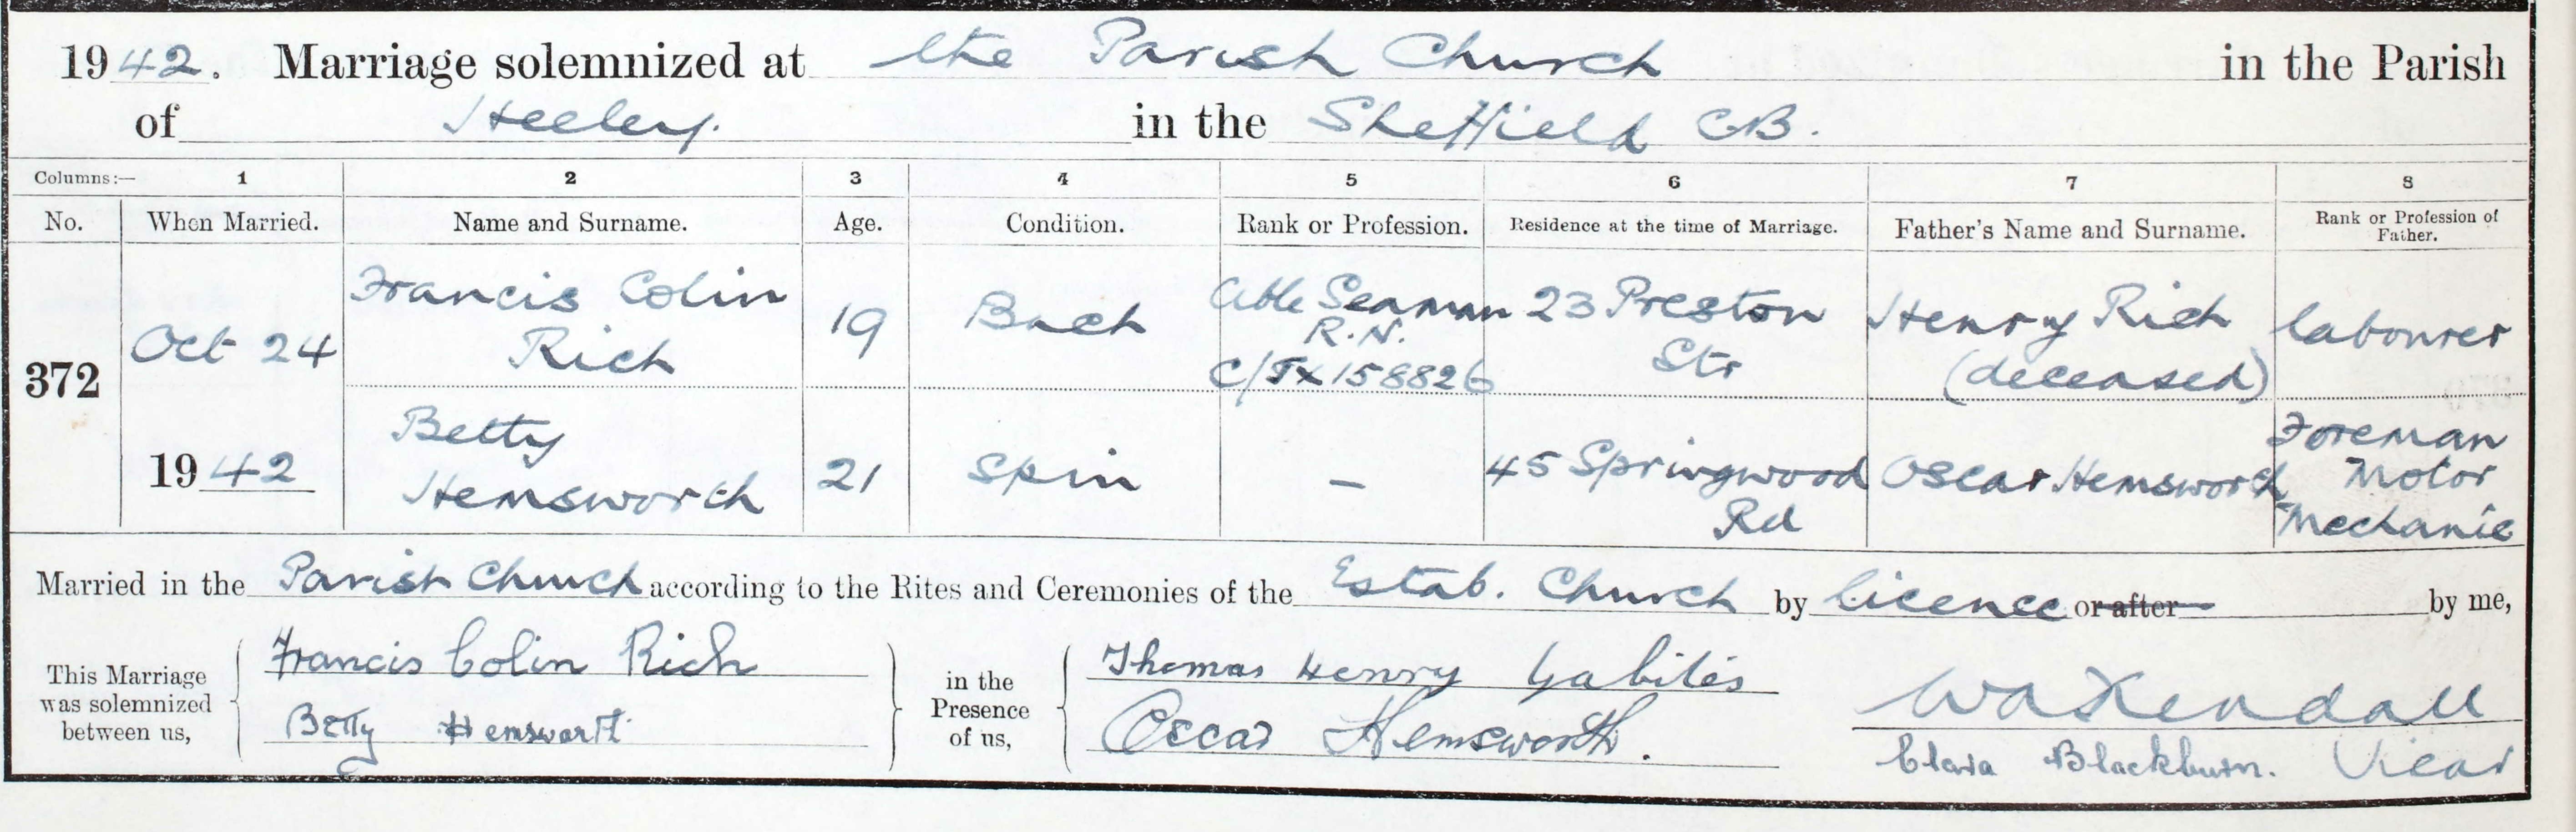 1942. Marriage solemnized at the Parish Church in the Parish
of Heeley. in the Sheffield CB.
Columns:— 1 2 3 4 5 6 7 8
No. When Married. Name and Surname. Age. Condition. Rank or Profession. Residence at the time of Marriage. Father's Name and Surname. Rank or Profession of Father.
372
Oct 24
1942
Francis Colin
Rich
19
Bach
Able Seaman
R.N.
C/JX158826
23 Preston
Str
Henry Rich
(deceased)
labourer
Betty
Hemsworth
21
Spin
–
45 Springwood
Rd
Oscar Hemsworth
Foreman
Motor
Mechanic
Married in the Parish Church according to the Rites and Ceremonies of the Estab. Church by licence or after by me,
This Marriage
was solemnized
between us,
Francis Colin Rich
Betty Hemsworth
in the
Presence
of us,
Thomas Henry Gabites
Oscar Hemsworth.
WA Kendall
Clara Blackburn. Vicar